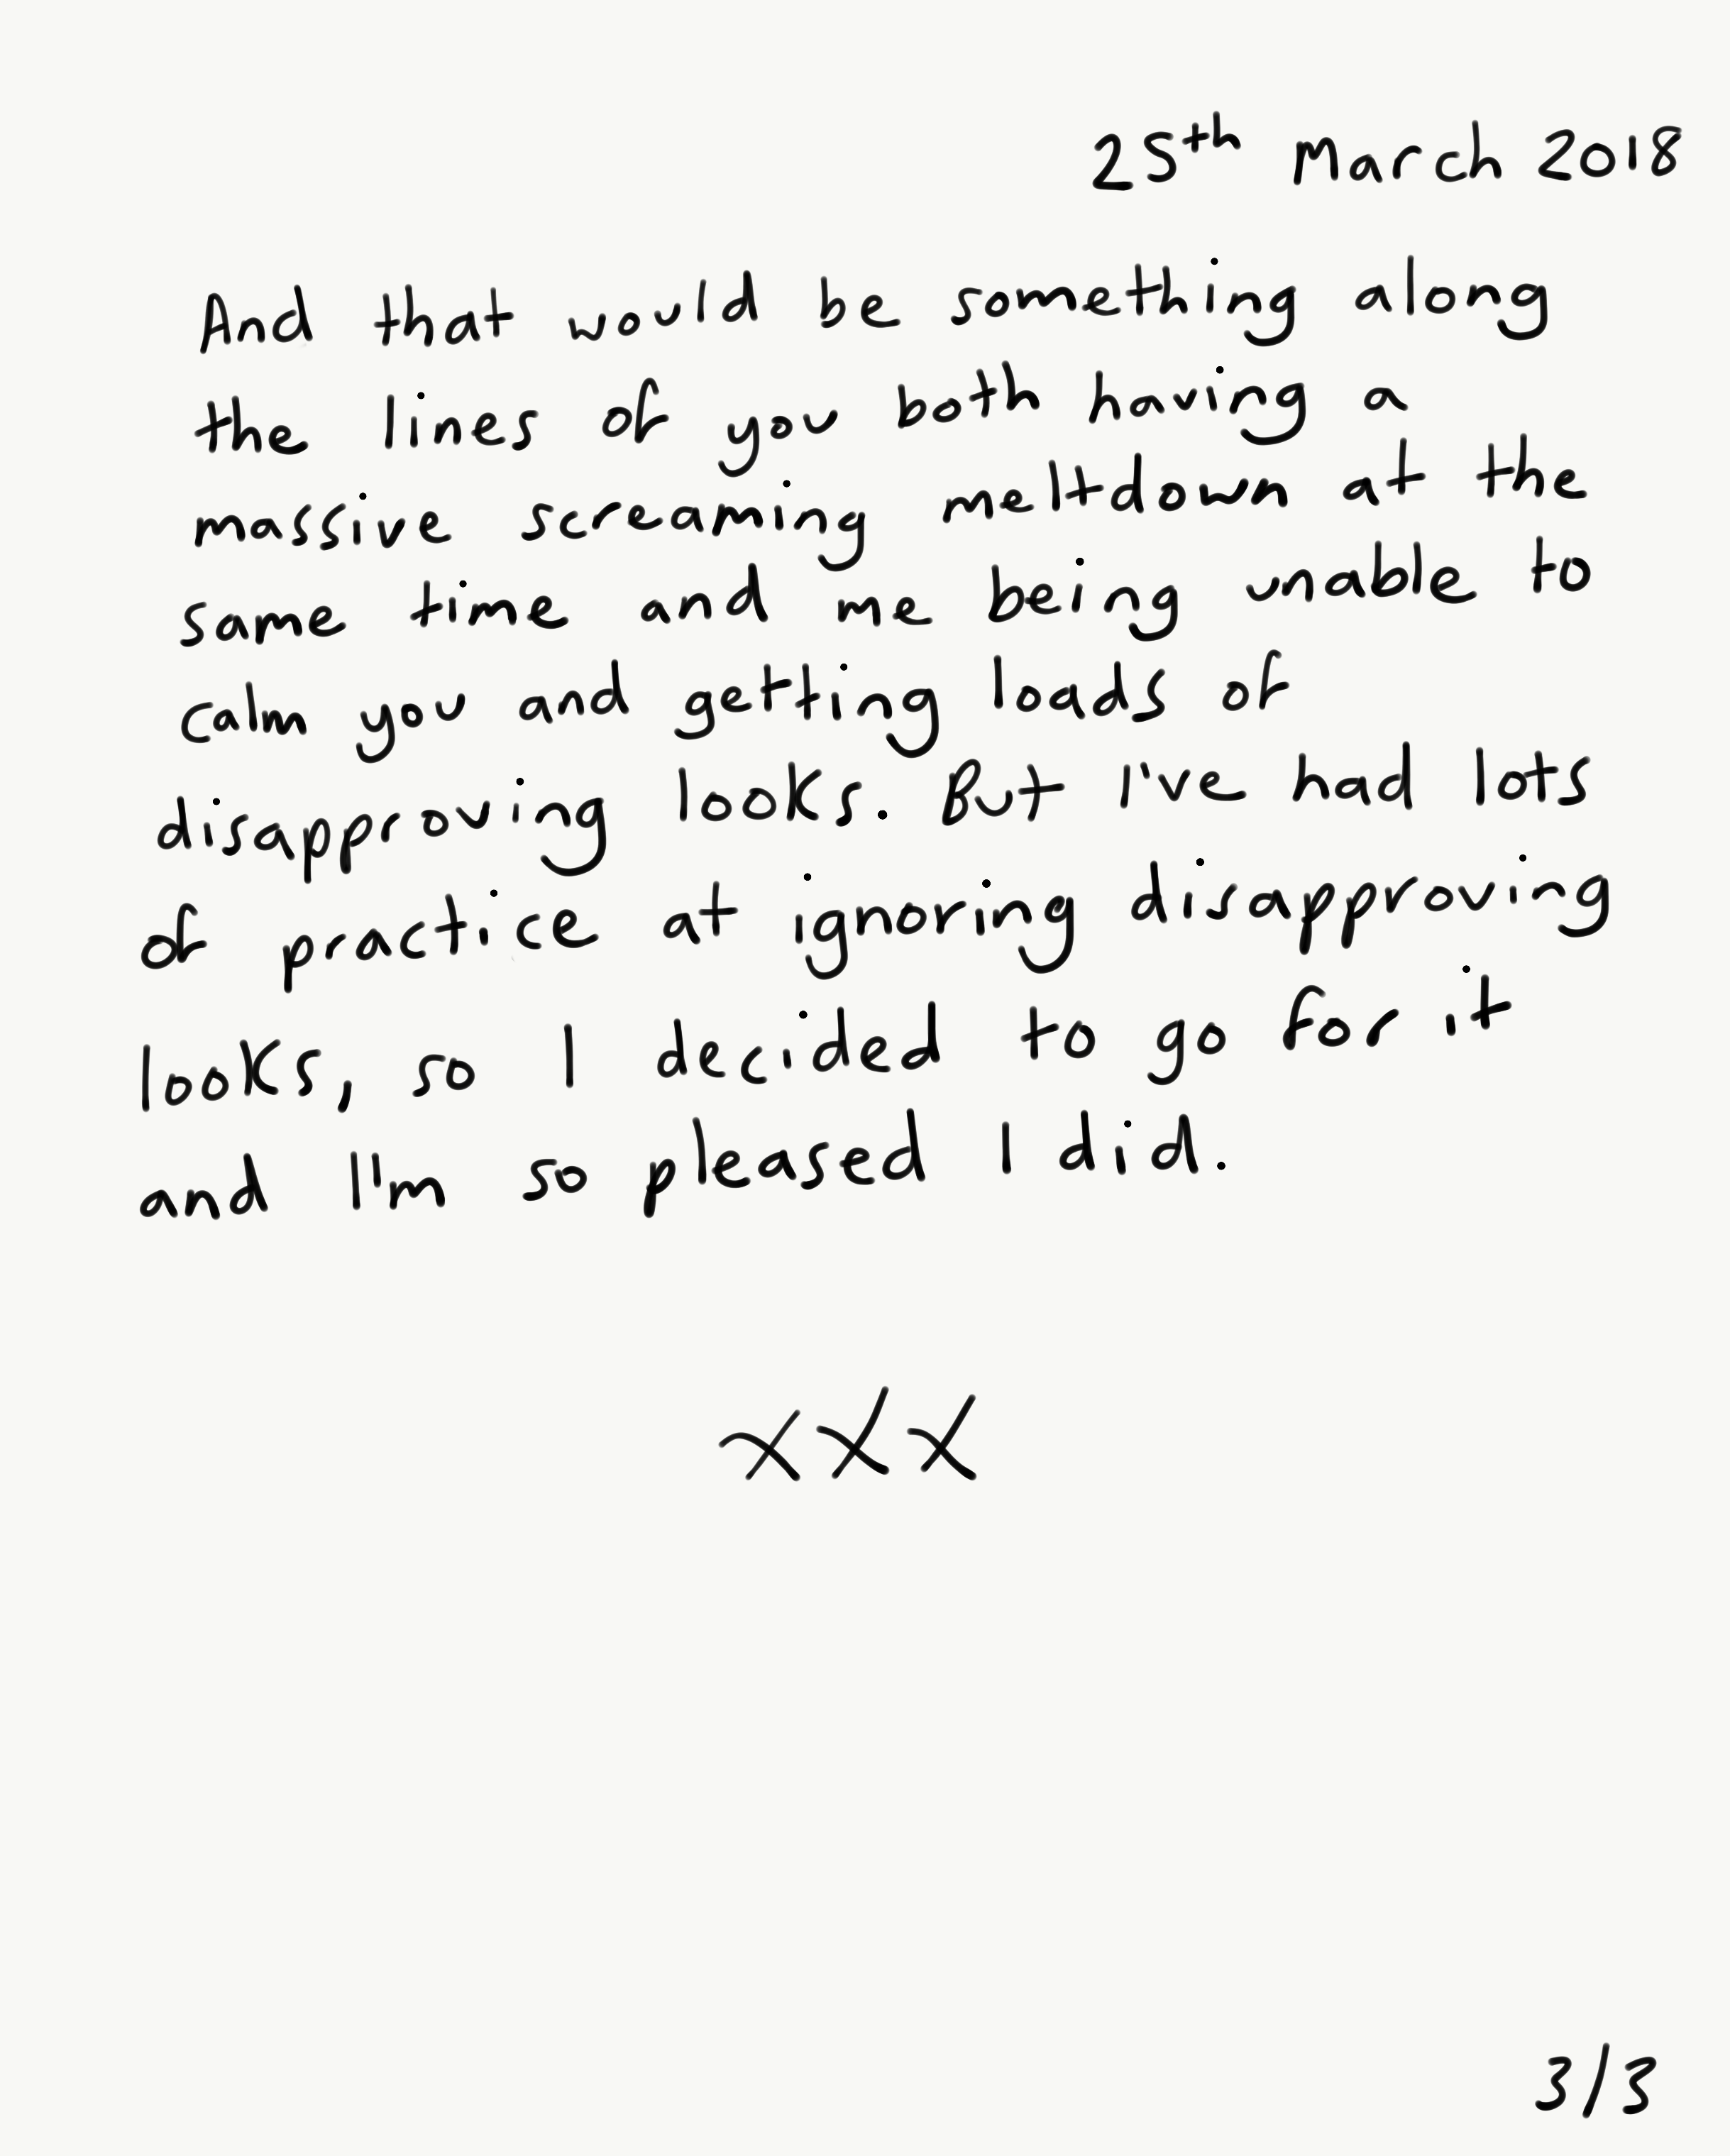 25th March 2018
And that would be something along
the lines of you both having a
massive screaming meltdown at the
same time and me being unable to
calm you and getting loads of
disapproving looks. But I've had lots
of practice at ignoring disapproving
looks, so I decided to go for it
and I'm so pleased I did.
xxx
3/3